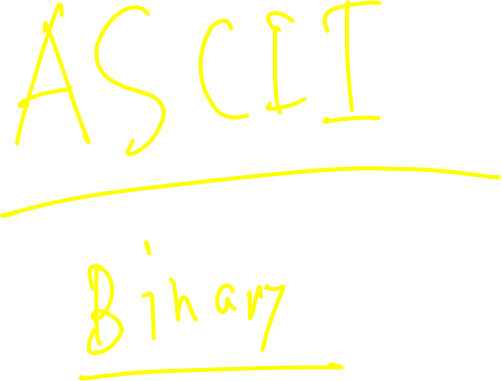 ASCII
Binary